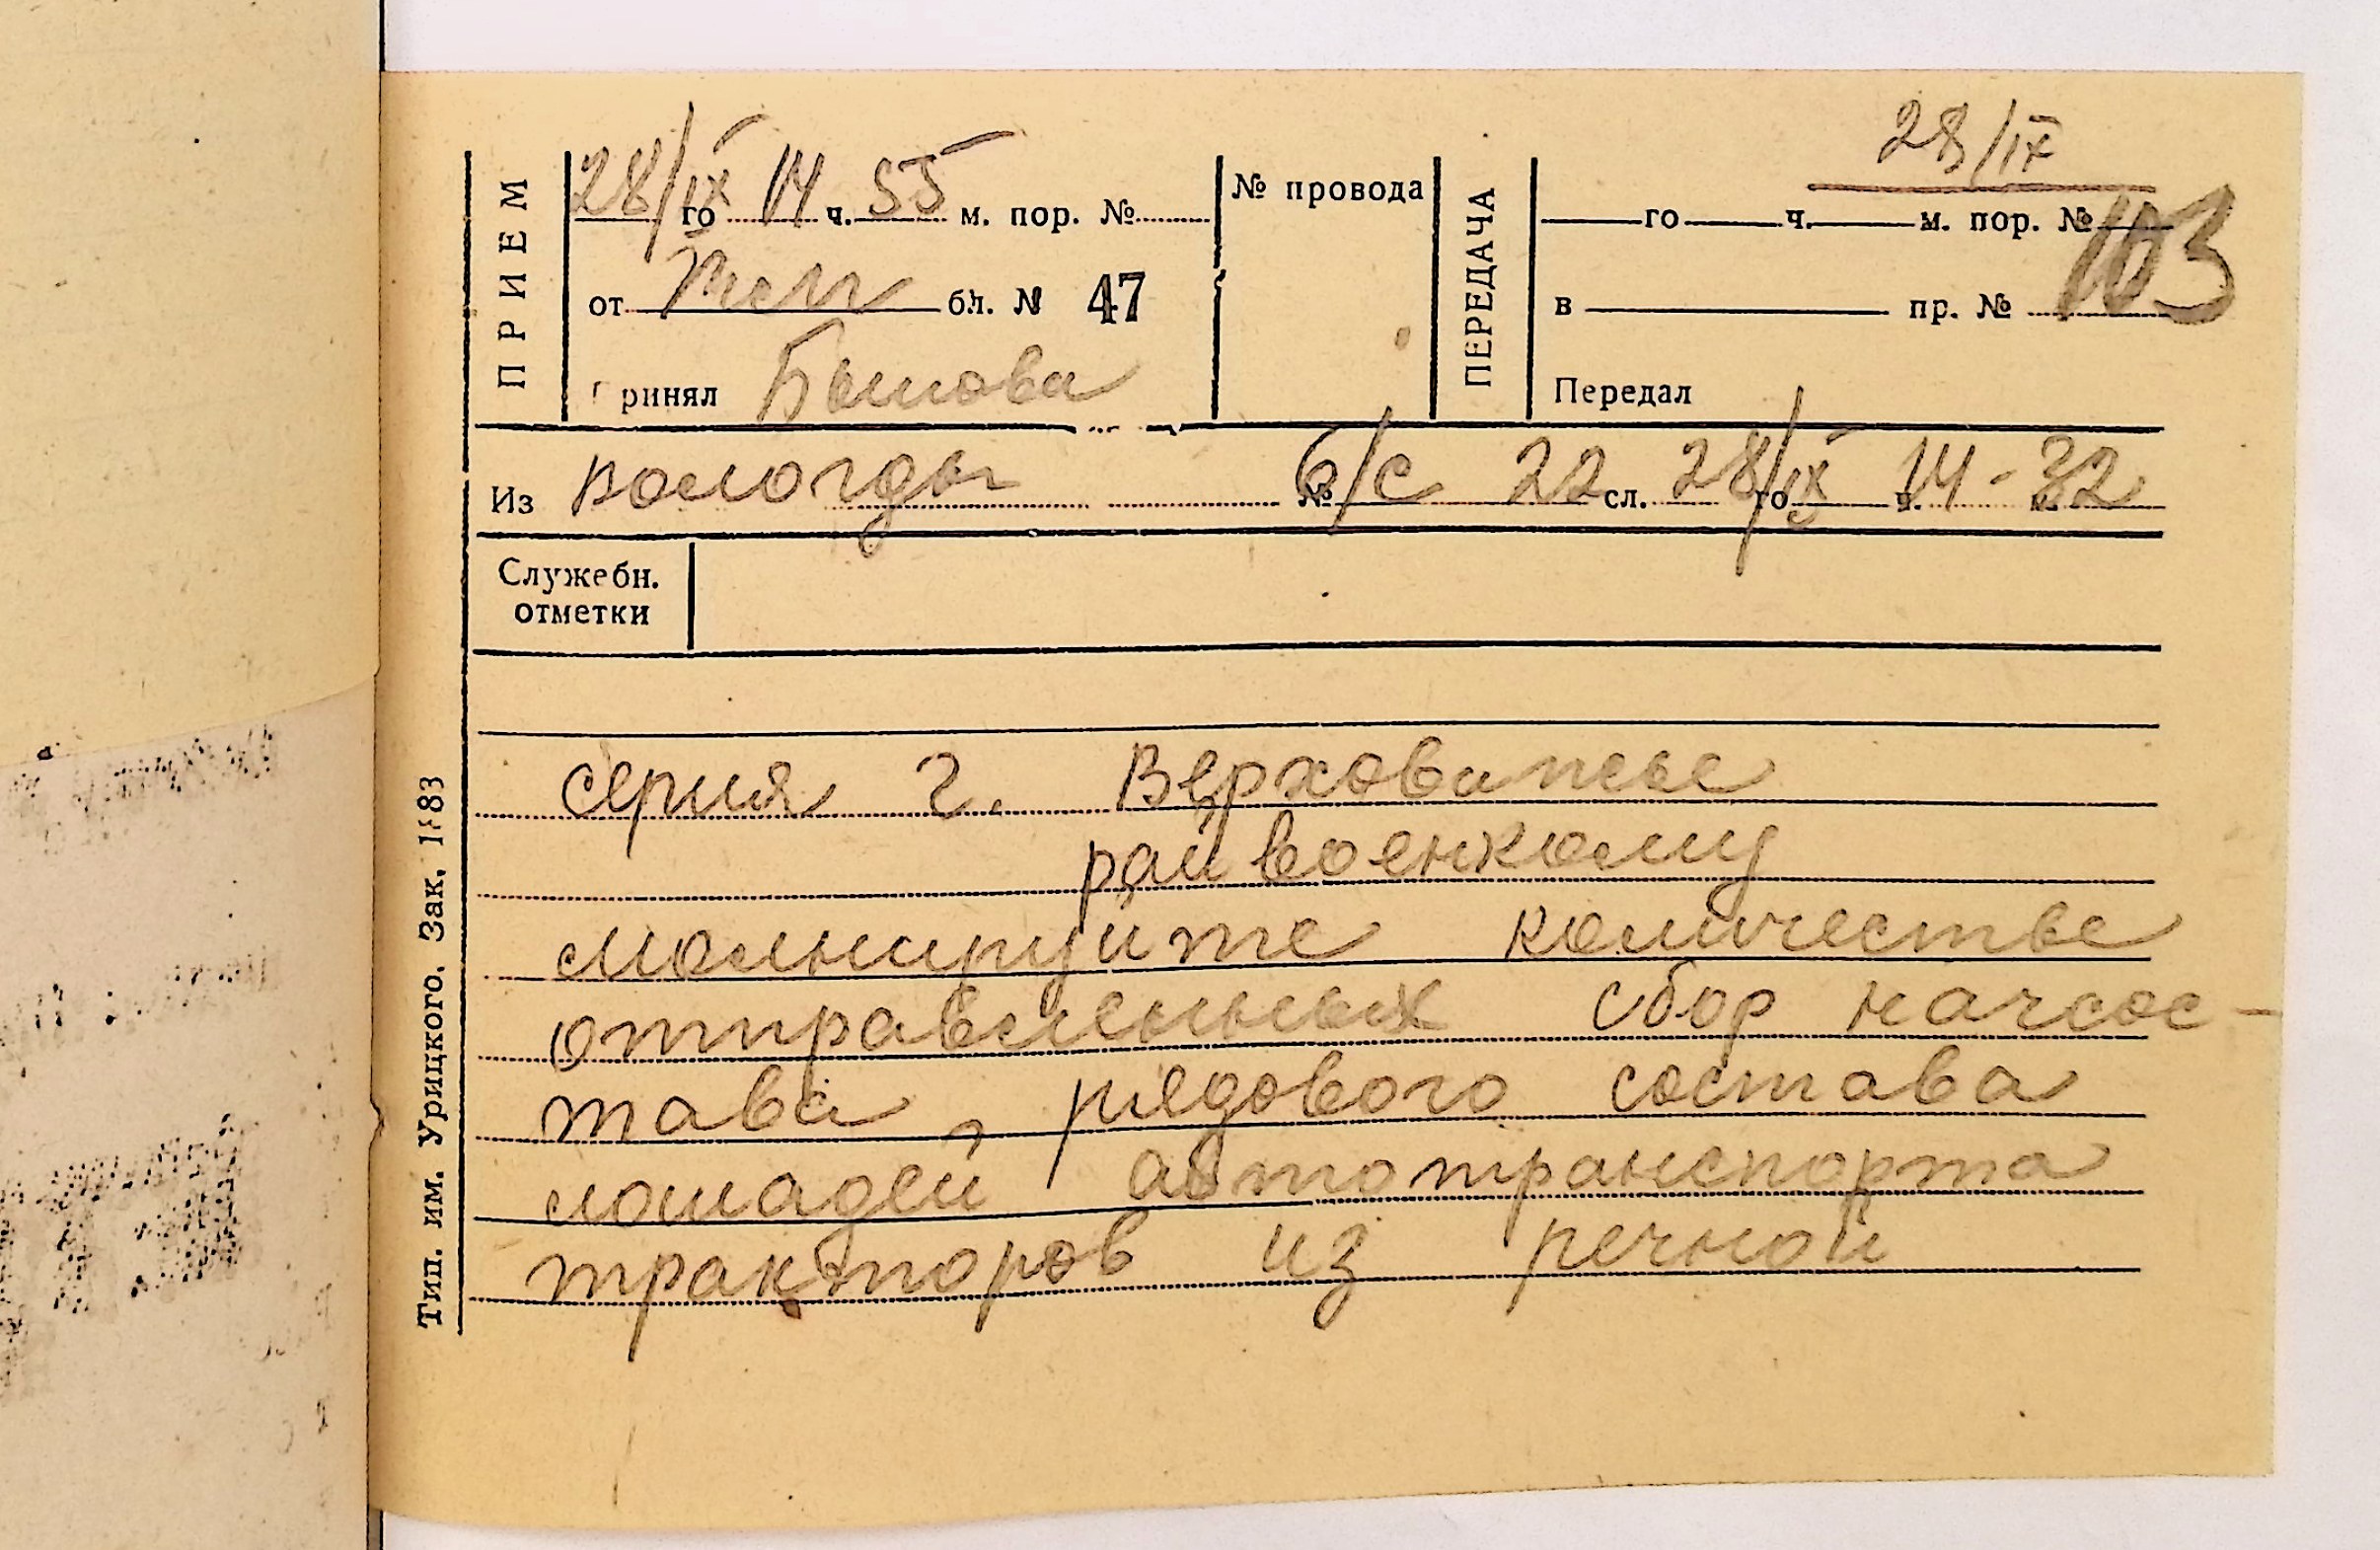 28/IX
ПРИЕМ
28/IX го 14 ч. 55 м. пор. №
№ провода
ПЕРЕДАЧА
го ч. м. пор. №
103
от бл. № 47
в пр. №
Принял
Передал
Из Вологды № б/с 22 сл. 28/IX го ч. 14-32
Служебн.
отметки
серия г. Верховажье
райвоенкому
Молнируйте количестве
отправленых сбор начсос-
тава, рядового состава
лошадей автотранспорта
тракторов из речной
Тип. им. Урицкого. Зак. 1883